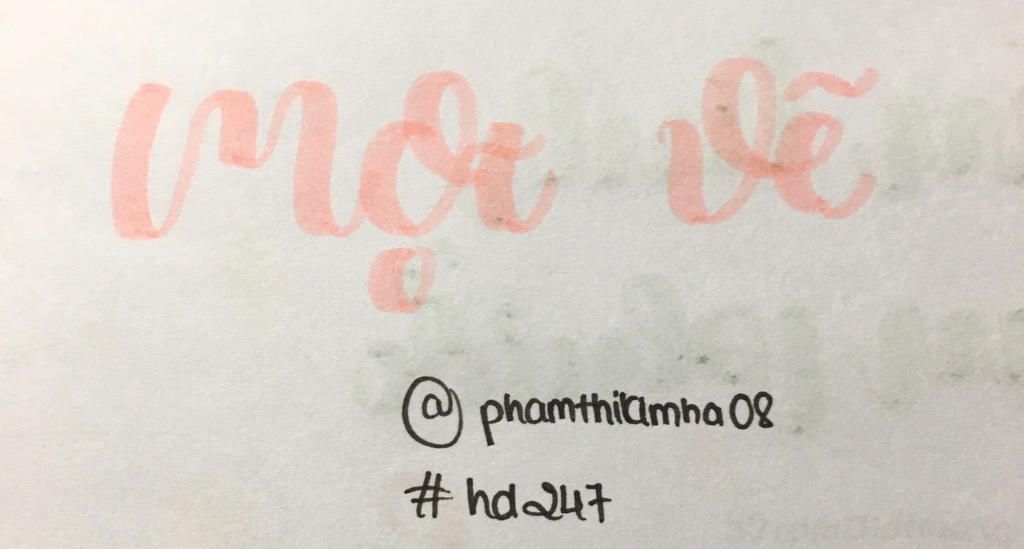 mọt vẽ
@phamthikimha08
#hd247